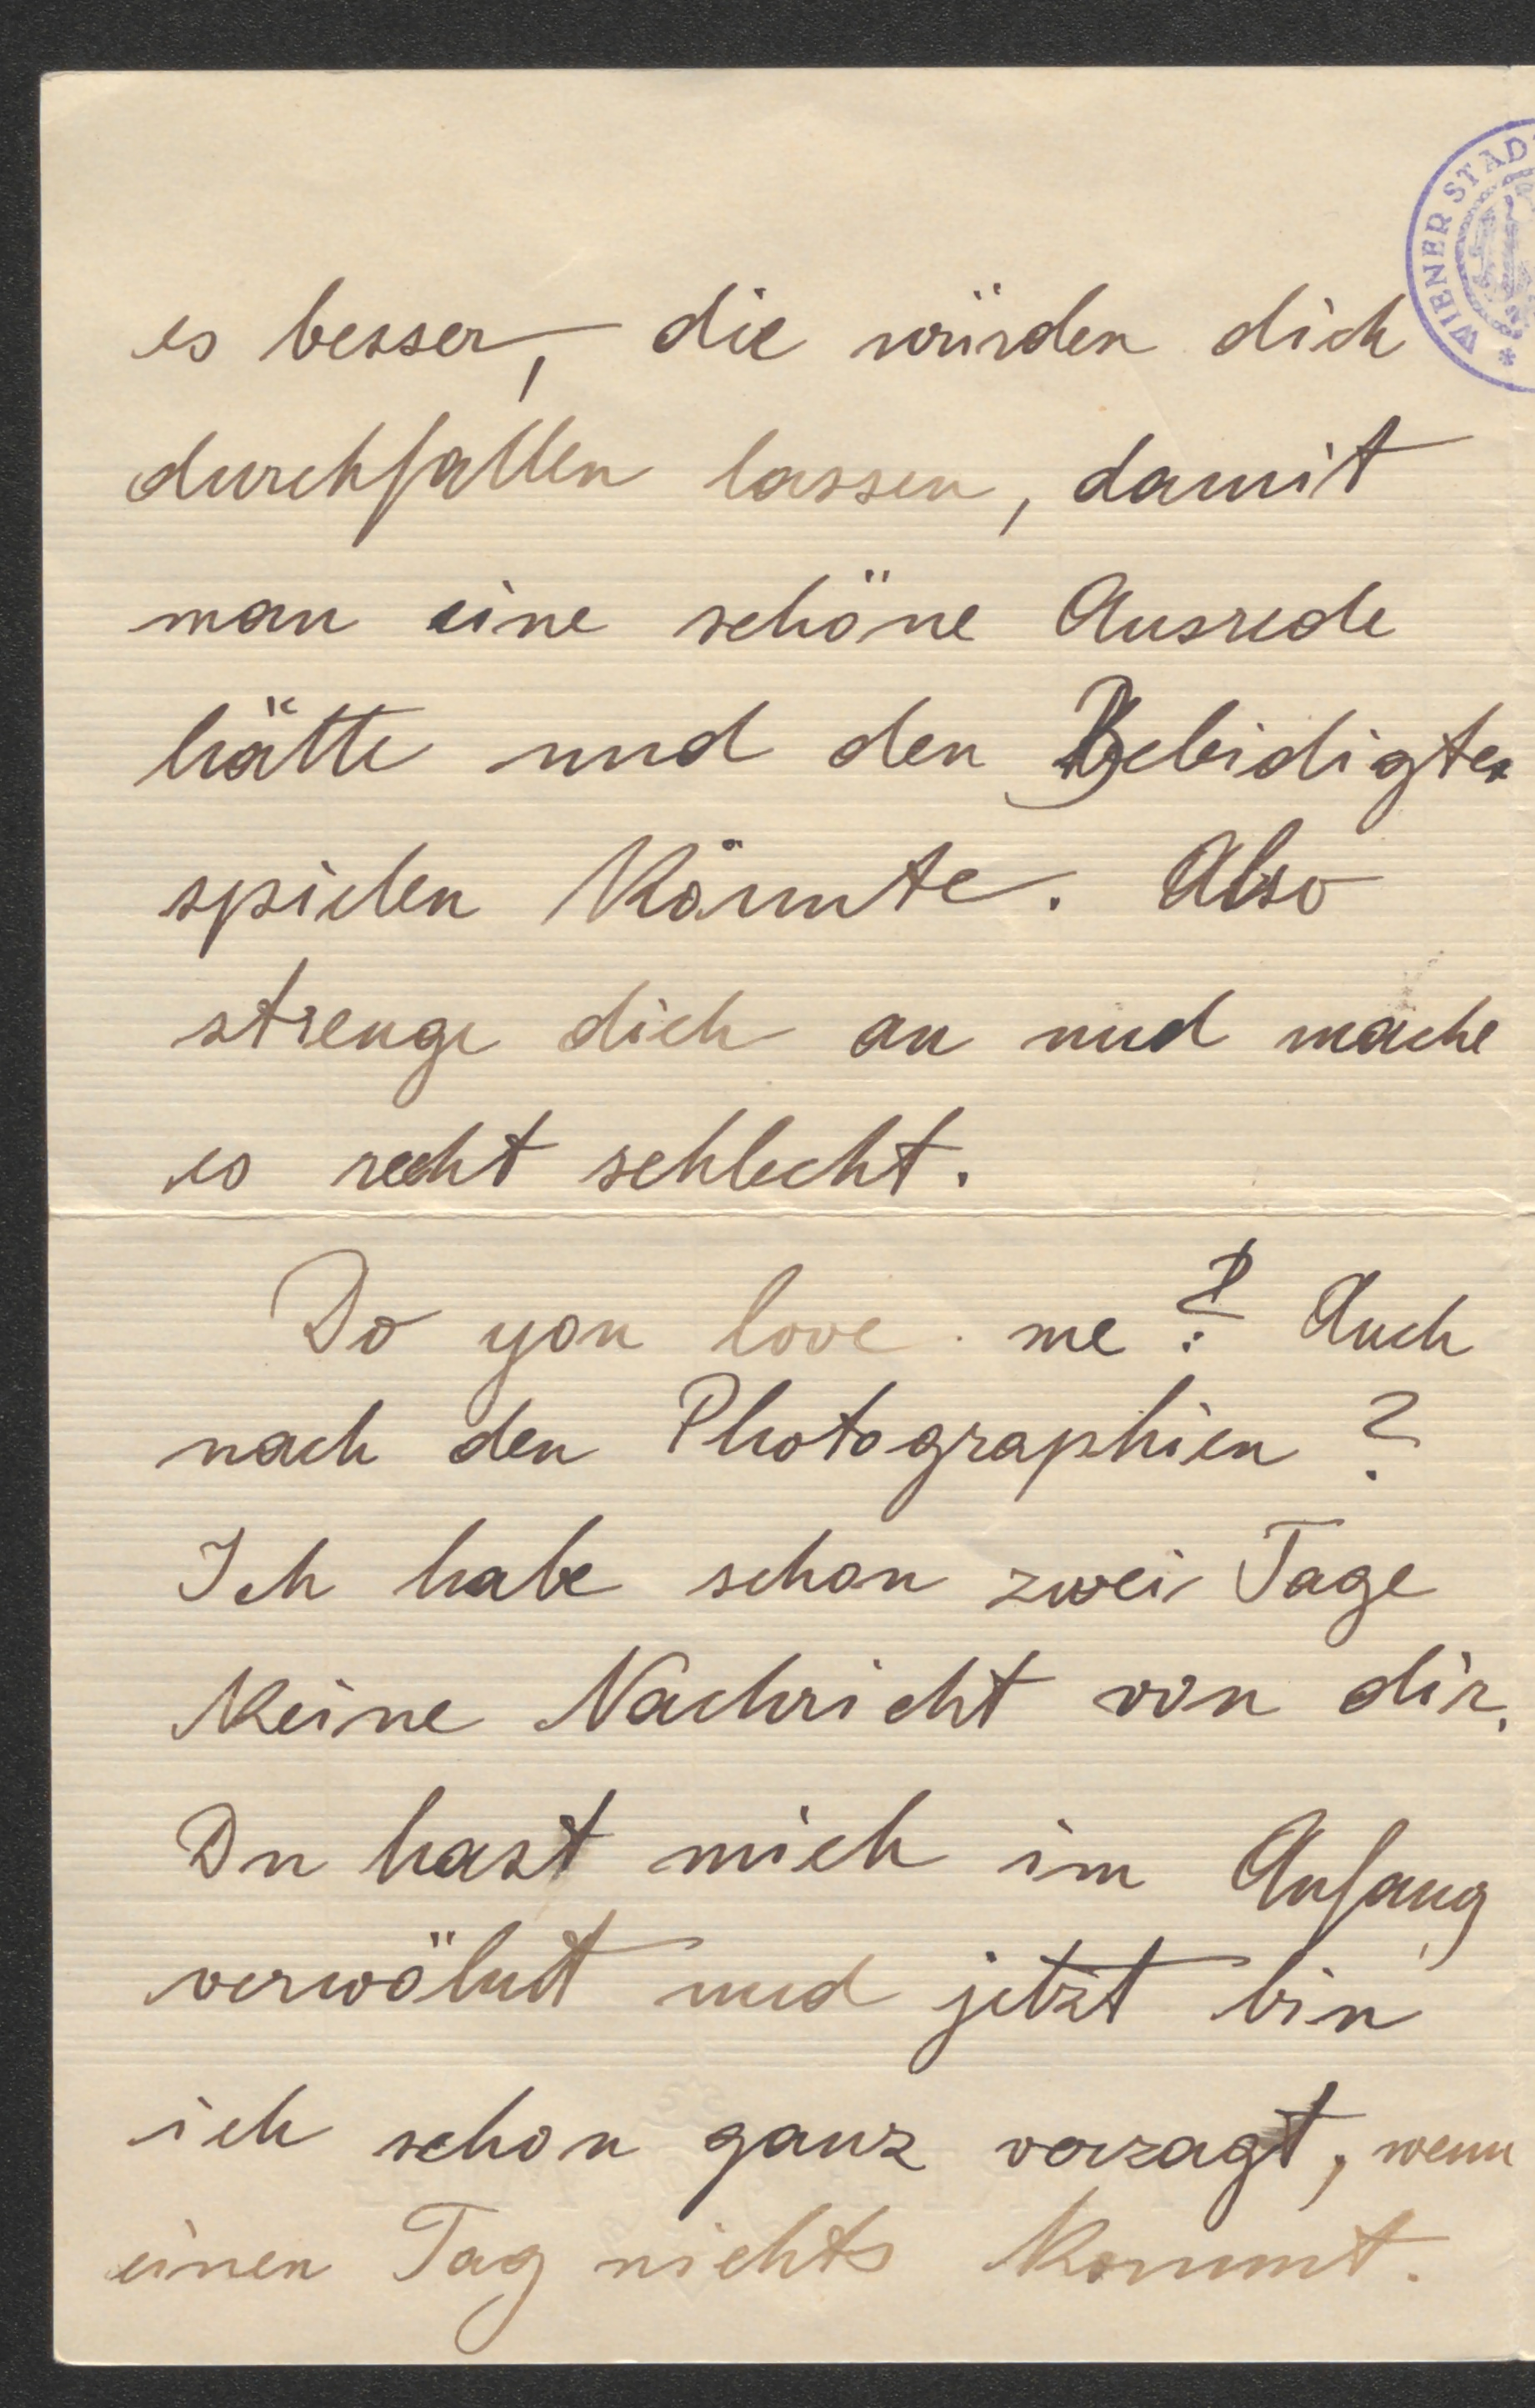 WIENER STAD
es besser, die würden dich
durchfallen lassen, damit
man eine schöne Ausrede
hätte und den Beleidigten
spielen könnte. Also
strenge dich an und mache
es recht schlecht.
Do you love me? Auch
nach den Photographien?
Ich habe schon zwei Tage
keine Nachricht von dir.
Du hast mich im Anfang
verwöhnt und jetzt bin
ich schon ganz verzagt, wenn
einen Tag nichts kommt.